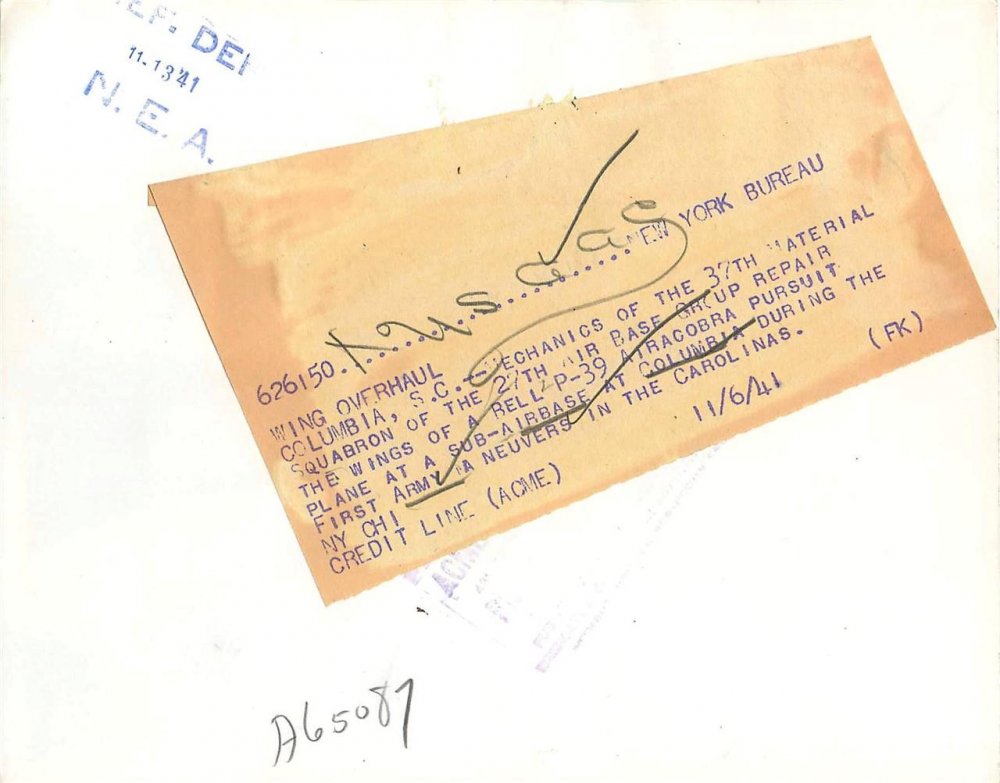 DEP
11-13'41
N. E. A.
626150. NEW YORK BUREAU
WING OVERHAUL
COLUMBIA, S.C.--MECHANICS OF THE 37TH MATERIAL
SQUABRON OF THE 27TH AIR BASE GROUP REPAIR
THE WINGS OF A BELL P-39 AIRACOBRA PURSUIT
PLANE AT A SUB-AIRBASE AT COLUMBIA DURING THE
FIRST ARMY MANEUVERS IN THE CAROLINAS.
NY CHI 11/6/41 (FK)
CREDIT LINE (ACME)
ACME
A65087